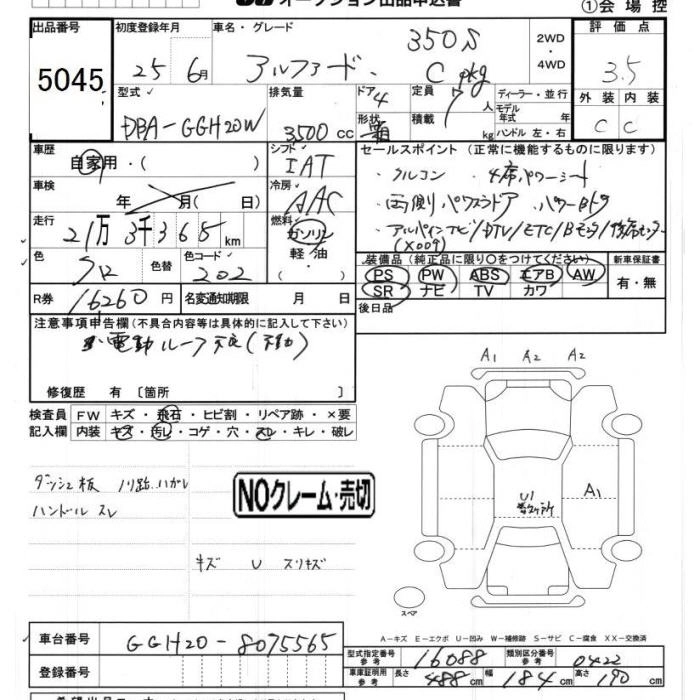 オークション出品申込書
①会場控
出品番号 5045
初度登録年月 25 6月
車名・グレード アルファード、 350S C pkg
2WD ・ 4WD
評価点 3.5
外装 内装
C C
型式 DBA-GGH20W
排気量 3500cc
ドア 4
形状 箱
定員 7人
積載 kg
ディーラー・並行
モデル年式 年
ハンドル 左・右
車歴 自家用・( )
シフト IAT
車検 年 月( 日)
冷房 AAC
走行 21万3千365km
燃料 ガソリン 軽油・( )
色 クロ
色替
色コード 202
R券 16260円
名変通知期限 月 日
セールスポイント (正常に機能するものに限ります)
・クルコン ・4席パワーシート
・両側パワスラドア ・パワーBドア
・アルパインナビ/DTV/ETC/Bモニタ/
(X009)
装備品(純正品に限り○をつけてください)
PS PW ABS エアB AW
SR ナビ TV カワ
新車保証書 有・無
後日品
注意事項申告欄(不具合内容等は具体的に記入して下さい)
電動ルーフ不良(不動)
修復歴 有 〔箇所 〕
検査員記入欄
FW キズ・飛石・ヒビ割・リペア跡・×要
内装 キズ・汚レ・コゲ・穴・スレ・キレ・破レ
ダッシュ板 ノリ跡.ハガレ
ハンドル スレ
NOクレーム・売切
キズ U スリキズ
A1 A2 A2
A1
U1
スペア
A－キズ E－エクボ U－凹み W－補修跡 S－サビ C－腐食 XX－交換済
車台番号 GGH20-8075565
登録番号
型式指定番号 参考 16088
類別区分番号 参考 0422
車庫証明用 参考 長さ 488cm 幅 184cm 高さ 190cm